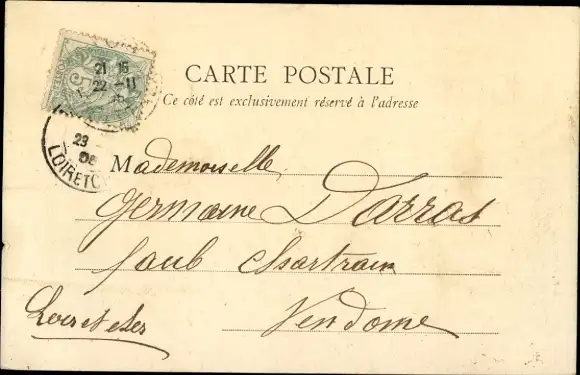 CARTE POSTALE
Ce côté est exclusivement réservé à l'adresse
21 15
22 - 11
23
06
LOIRET
Mademoiselle
Germaine Darras
faub Chartrain
Vendome
Loir et cher